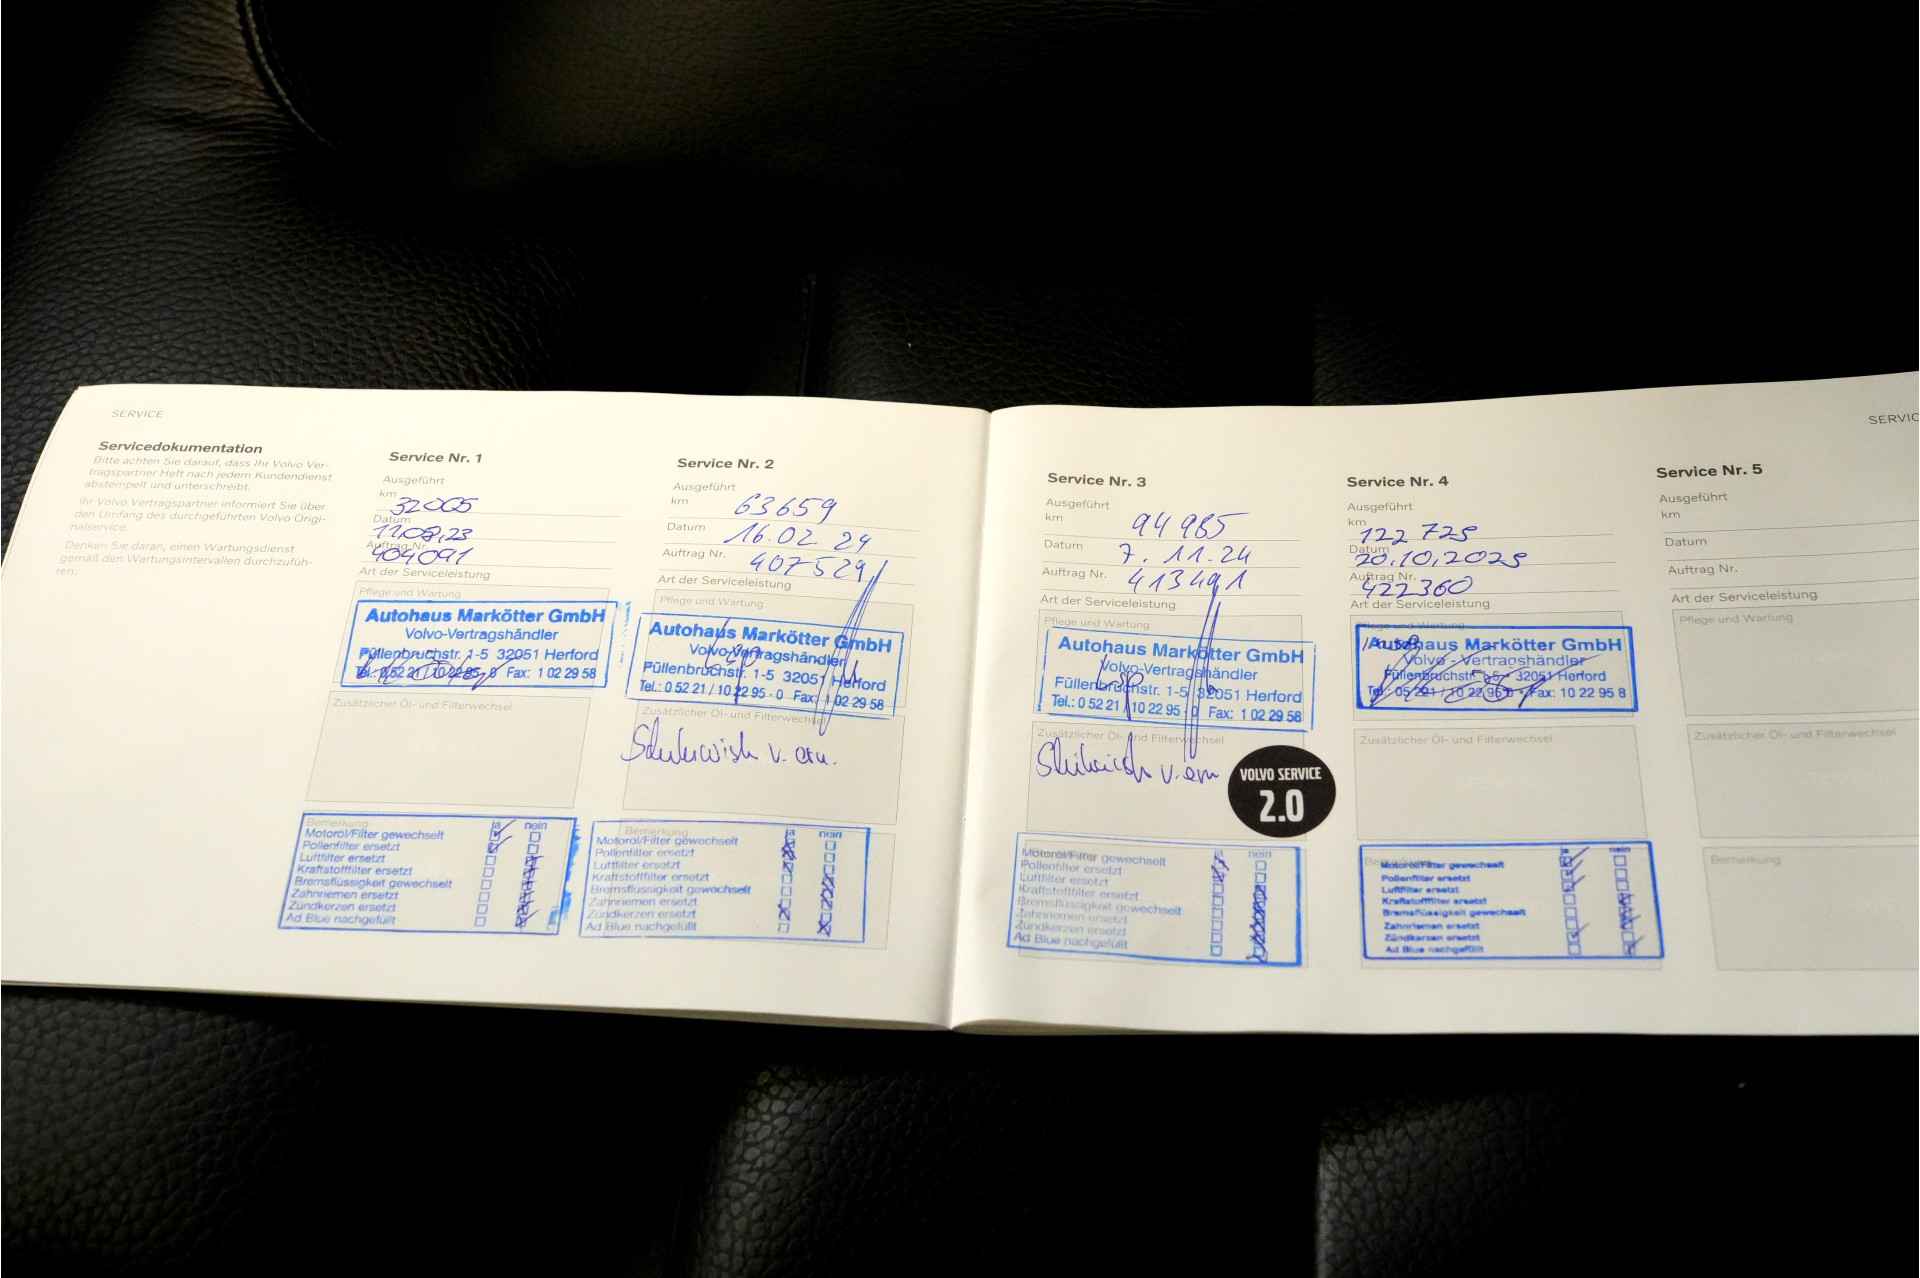 SERVICE
Servicedokumentation
Bitte achten Sie darauf, dass Ihr Volvo Ver-
tragspartner Heft nach jedem Kundendienst
abstempelt und unterschreibt.
Ihr Volvo Vertragspartner informiert Sie über
den Umfang des durchgeführten Volvo Origi-
nalservice.
Denken Sie daran, einen Wartungsdienst
gemäß den Wartungsintervallen durchzufüh-
ren.
Service Nr. 1
Ausgeführt
km 32005
Datum 11.08,23
Auftrag Nr. 404091
Art der Serviceleistung
Pflege und Wartung
Autohaus Markötter GmbH
Volvo-Vertragshändler
Füllenbruchstr. 1-5 32051 Herford
Tel.: 0 52 21 / 10 22 95 - 0 Fax: 1 02 29 58
Zusätzlicher Öl- und Filterwechsel
Bemerkung
ja nein
Motoröl/Filter gewechselt
Pollenfilter ersetzt
Luftfilter ersetzt
Kraftstofffilter ersetzt
Bremsflüssigkeit gewechselt
Zahnriemen ersetzt
Zündkerzen ersetzt
Ad Blue nachgefüllt
Service Nr. 2
Ausgeführt
km 63659
Datum 16.02 24
Auftrag Nr. 407529
Art der Serviceleistung
Pflege und Wartung
Autohaus Markötter GmbH
Volvo-Vertragshändler
Füllenbruchstr. 1-5 32051 Herford
Tel.: 0 52 21 / 10 22 95 - 0 Fax: 1 02 29 58
Zusätzlicher Öl- und Filterwechsel
v. ern.
Bemerkung
ja nein
Motoröl/Filter gewechselt
Pollenfilter ersetzt
Luftfilter ersetzt
Kraftstofffilter ersetzt
Bremsflüssigkeit gewechselt
Zahnriemen ersetzt
Zündkerzen ersetzt
Ad Blue nachgefüllt
SERVIC
Service Nr. 3
Ausgeführt
km 94985
Datum 7. 11.24
Auftrag Nr. 413491
Art der Serviceleistung
Pflege und Wartung
Autohaus Markötter GmbH
Volvo-Vertragshändler
Füllenbruchstr. 1-5 32051 Herford
Tel.: 0 52 21 / 10 22 95 - 0 Fax: 1 02 29 58
Zusätzlicher Öl- und Filterwechsel
v. ern
VOLVO SERVICE
2.0
ja nein
Motoröl/Filter gewechselt
Pollenfilter ersetzt
Luftfilter ersetzt
Kraftstofffilter ersetzt
Bremsflüssigkeit gewechselt
Zahnriemen ersetzt
Zündkerzen ersetzt
Ad Blue nachgefüllt
Service Nr. 4
Ausgeführt
km 122 725
Datum 20.10.2025
Auftrag Nr. 422360
Art der Serviceleistung
Pflege und Wartung
Autohaus Markötter GmbH
Volvo - Vertragshändler
Füllenbruchstr. 1-5 32051 Herford
Tel.: 05 221 / 10 22 95 0 - Fax: 10 22 95 8
Zusätzlicher Öl- und Filterwechsel
nein
Motoröl/Filter gewechselt
Pollenfilter ersetzt
Luftfilter ersetzt
Kraftstofffilter ersetzt
Bremsflüssigkeit gewechselt
Zahnriemen ersetzt
Zündkerzen ersetzt
Ad Blue nachgefüllt
Service Nr. 5
Ausgeführt
km
Datum
Auftrag Nr.
Art der Serviceleistung
Pflege und Wartung
Zusätzlicher Öl- und Filterwechsel
Bemerkung